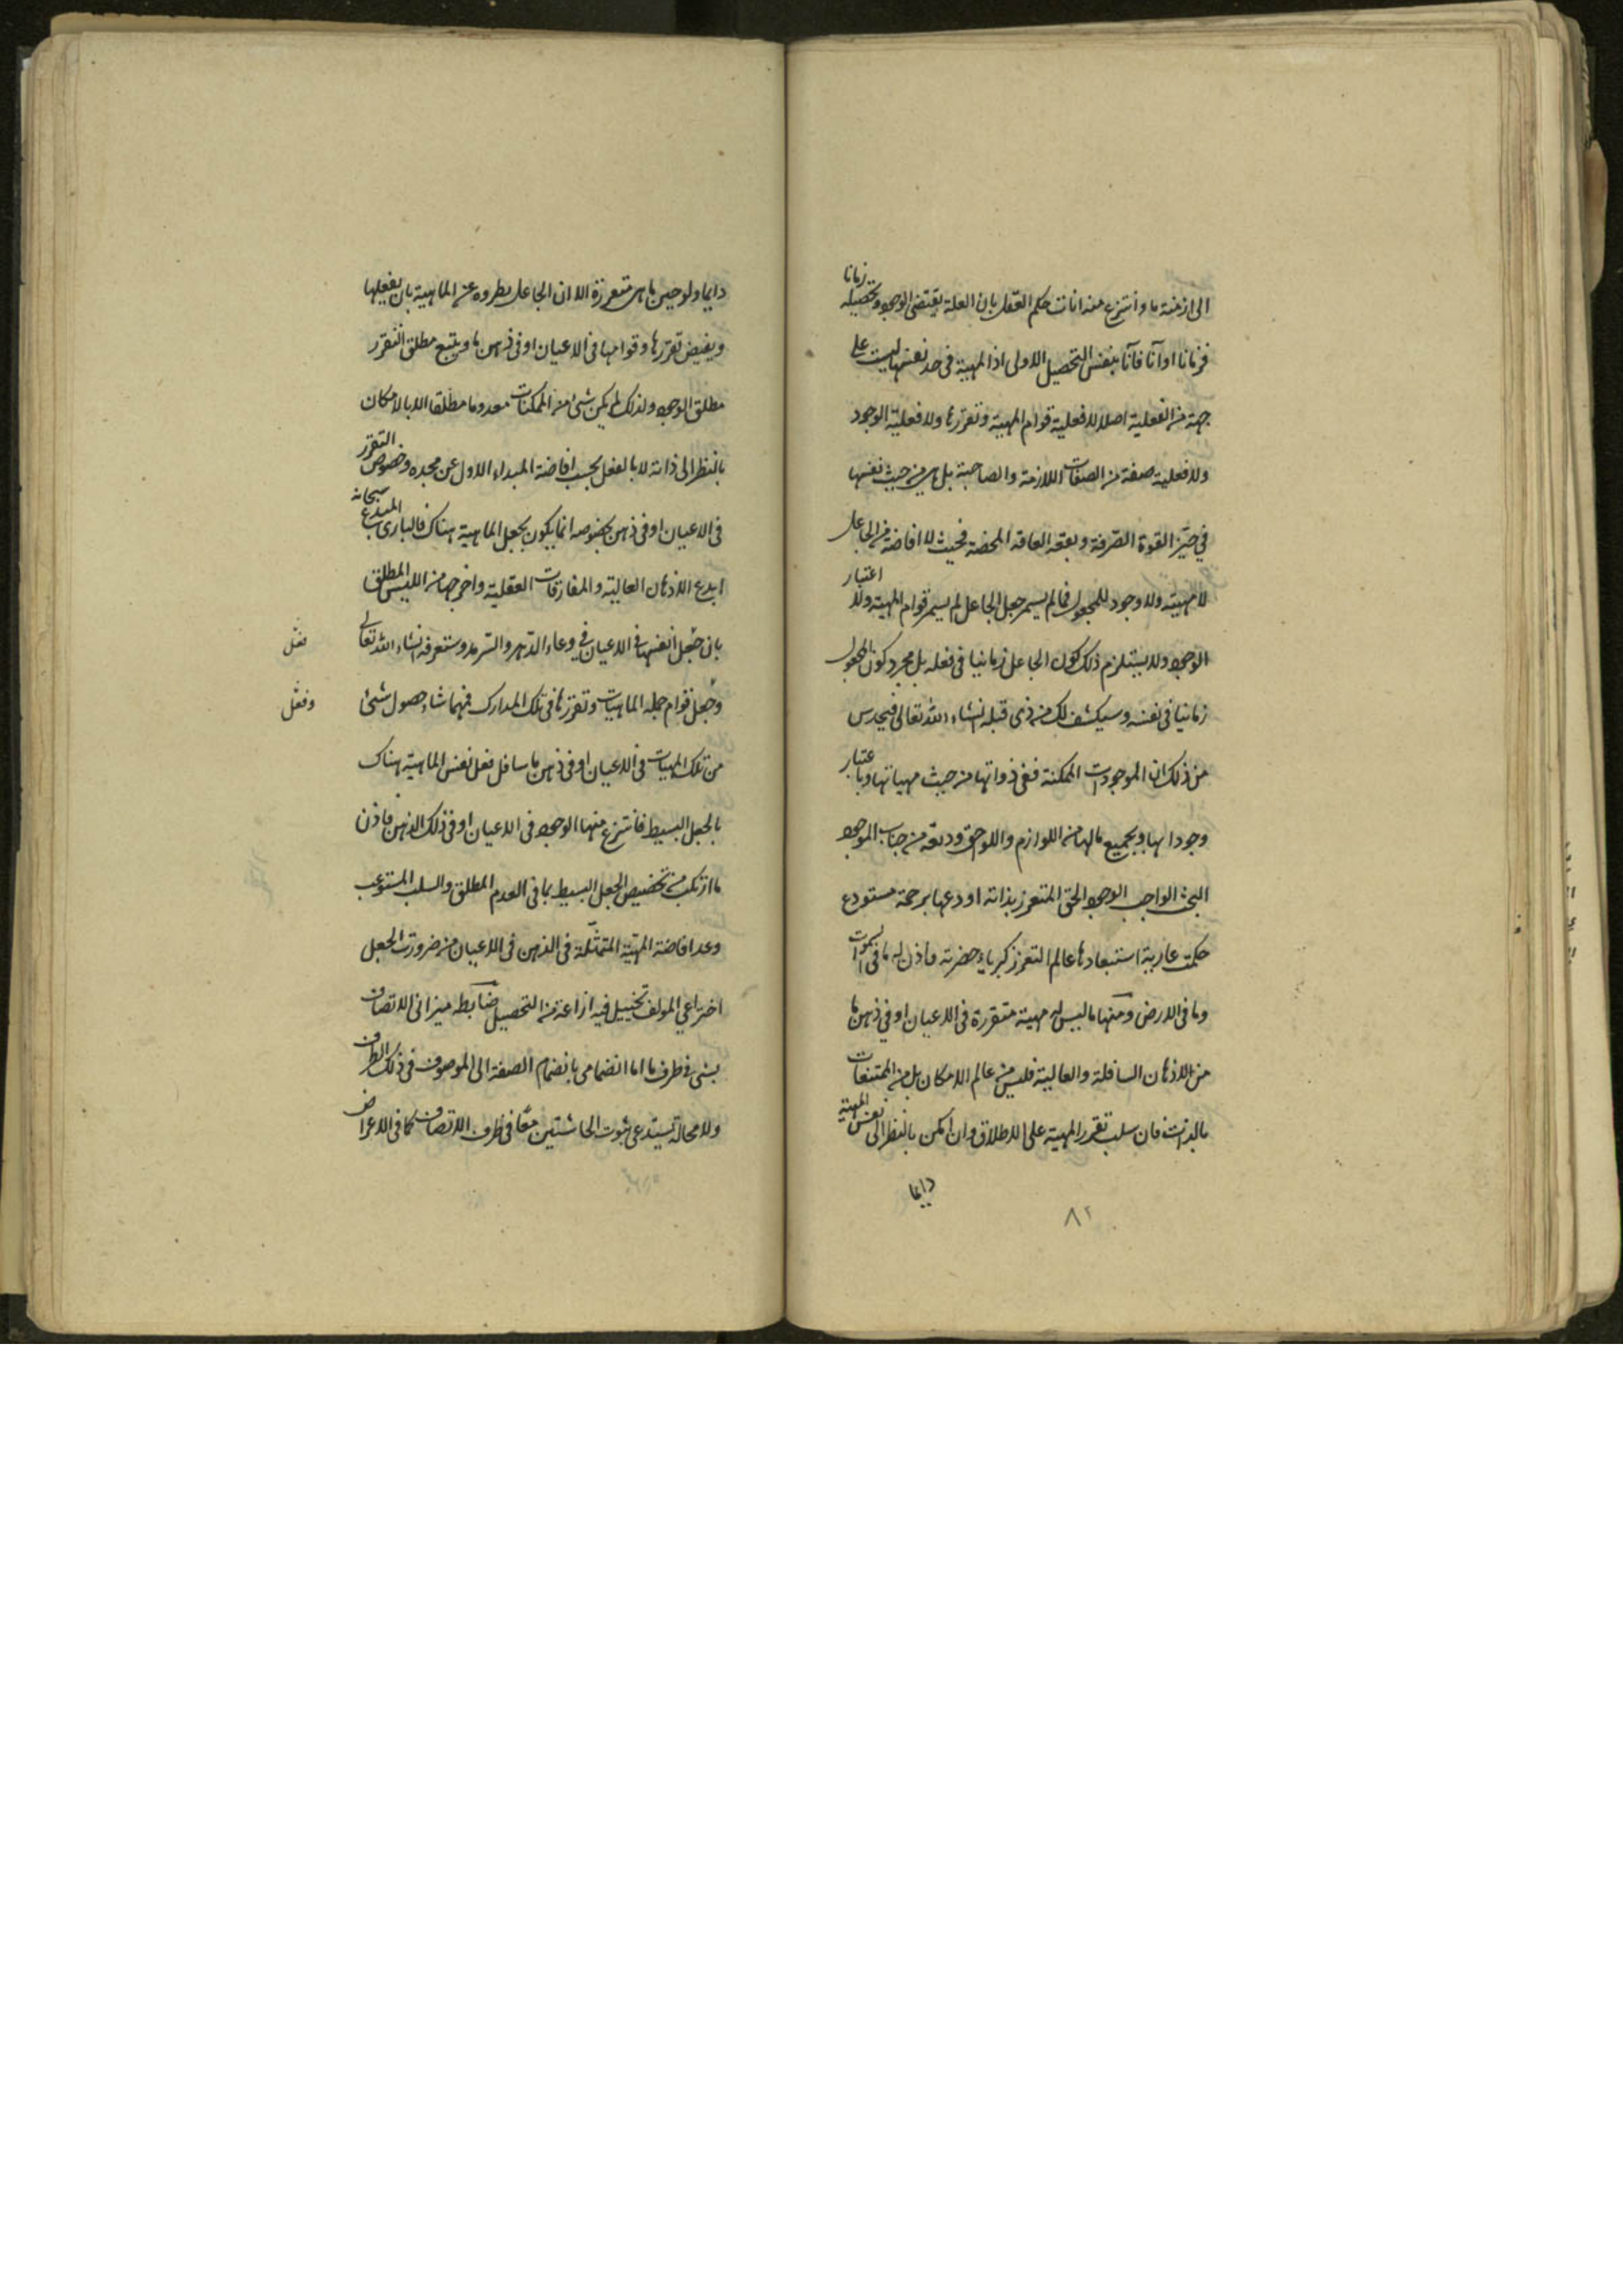 الى ازمنة ما وانتزع منه انات حكم العقل بان العلة يقتضى الوجود وتحصيله زمانا
فزمانا او آنا فآنا بنفس التحصيل الاولى اذ المهية فى حد نفسها ليست على
جهة من الفعلية اصلا لا فعلية قوام المهية وتقررها ولا فعلية الوجود
ولا فعلية صفة من الصفات اللازمة والمصاحبة بل هى من حيث نفسها
في حيّز القوة الصّرفة وبقعة الفاقة المحضة فحيث لا افاضة من الجاعل
لا مهيته ولا وجود للمجعول فما لم يسمر جعل الجاعل لم يسمر قوام المهية ولا اعتبار
الوجود ولا يستلزم ذلك كون الجاعل زمانيا فى فعله بل مجرد كون المجعول
زمانيا فى نفسه وسيكشف لك من ذى قبله انشاء الله تعالى فيحدس
من ذلك ان الموجودات الممكنة ففى ذواتها من حيث مهياتها وباعتبار
وجوداتها وبجميع مالها من اللوازم واللواحق وديعة من جناب الموجود
البحت الواجب الوجود الحق المتعزز بذاته اودعها برحمة مستودع
حكمته عارية استعادها عالم التعزز كبرياء حضرته فاذن له ما فى السموات
وما فى الارض ومنها ما ليس له مهية متقررة فى الاعيان او في ذهن ما
من الاذهان السافلة والعالية فليس من عالم الامكان بل من الممتنعات
بالذات فان سلب تقرر المهية على الاطلاق وان امكن بالنظر الى نفس المهية
دايما
٨٢
دايما ولو حين ما هى متقررة الا ان الجاعل يطرده عن الماهية بان يفعلها
ويفيض تقررها وقوامها فى الاعيان او فى ذهن ما ويتبع مطلق التقرر
مطلق الوجود ولذلك لم يكن شئ من الممكنات معدوما مطلقا الا بالامكان
بالنظر الى ذاته لا بالفعل بحسب افاضة المبداء الاول عن مجده وخصوص التقرر
فى الاعيان او فى ذهن بخصوصه انما يكون بجعل الماهية هناك فالبارى المبدع سبحانه
ابدع الاذهان العالية والمفارقات العقلية واخرجها من الليس المطلق
بان جعل انفسها فى الاعيان في وعاء الدّهر والسّرمد وستعرفه انشاء الله تعالى
فعل
وجعل قوام جملة الماهيات وتقررها فى تلك المدارك فمهما شاء حصول شئ
وفعل
من تلك المهيات فى الاعيان او فى ذهن ما سافل فعل نفس الماهية هناك
بالجعل البسيط فانتزع منها الوجود فى الاعيان او فى ذلك الذهن فاذن
ما ارتكب من تخصيص الجعل البسيط بما فى العدم المطلق والسلب المستوعب
وعد افاضة المهيّة المتمثّلة فى الذهن فى الاعيان من ضروريات الجعل
اختراعي المولف تخييل فيه ازاغة من التحصيل ضابطة ميزانى الاتصاف
بشئ فى ظرف ما اما انضمامى بانضمام الصفة الى الموصوف فى ذلك الظرف
ولا محالة يستدعى ثبوت الحاشيتين معًا فى ظرف الاتصاف كما فى الاعراض